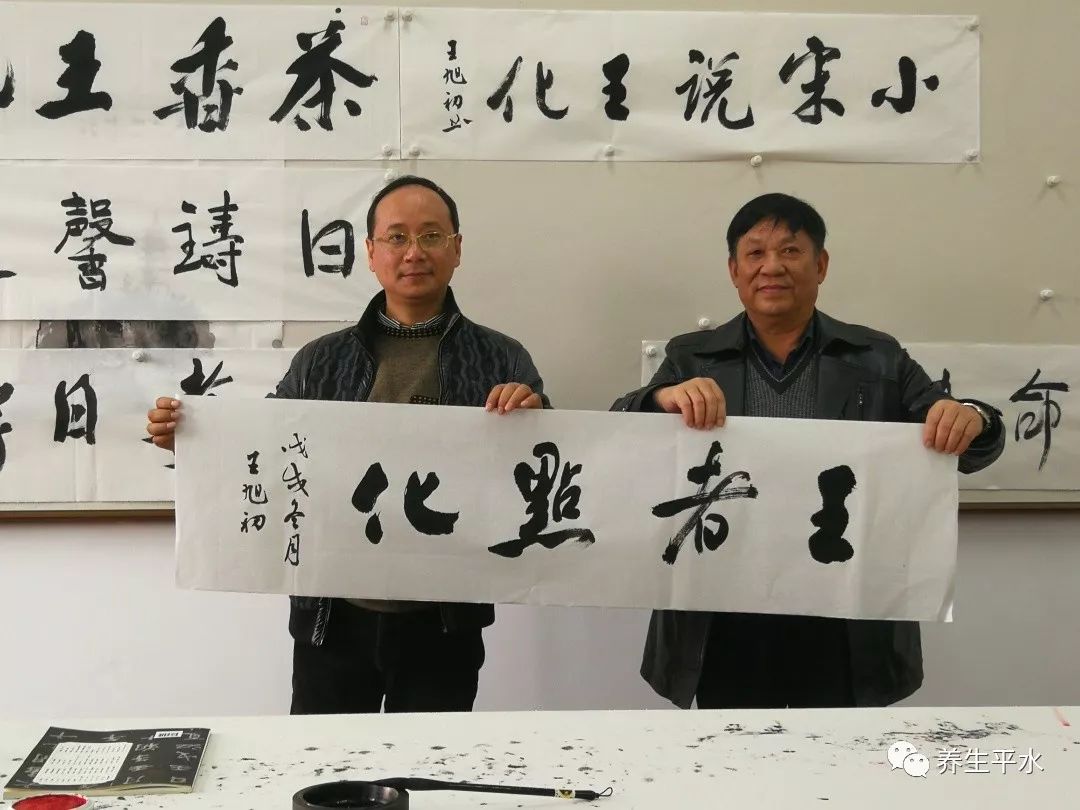 小宋说王化
王旭初书
茶香王
日鑄馨
日
命
王者點化
戊戌冬月
王旭初
养生平水